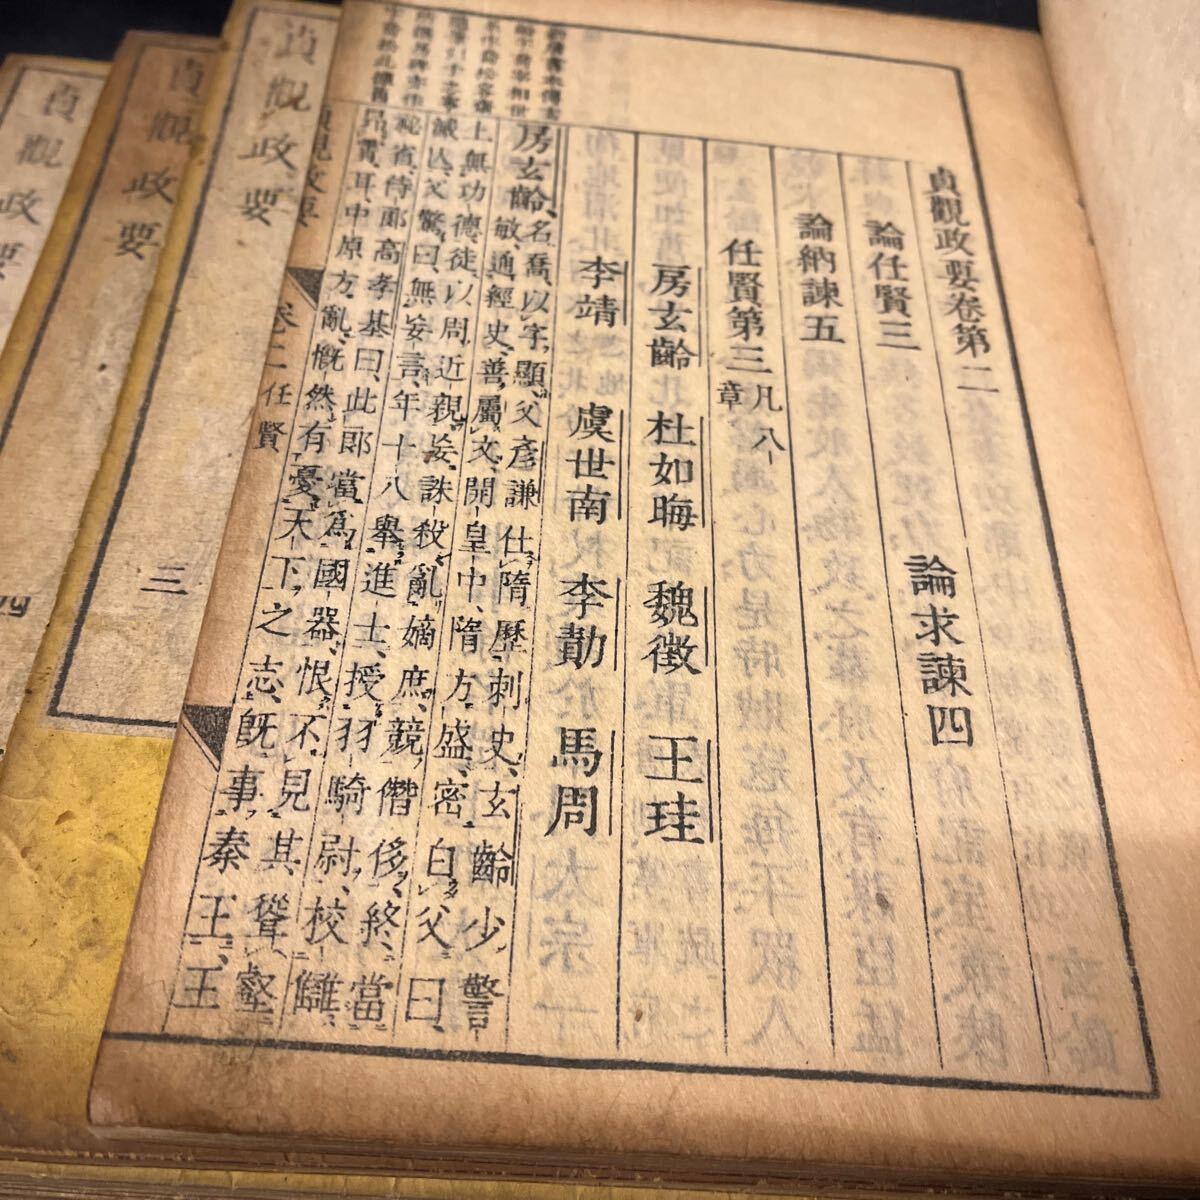 貞觀政要卷第二
論任賢三
論求諫四
論納諫五
任賢第三凡八章
房玄齡
杜如晦
魏徵
王珪
李靖
虞世南
李勣
馬周
房玄齡、名喬、以字顯、父彥謙仕隋、歷刺史、玄齡少警
敏、通經史、善屬文、開皇中、隋方盛、密白父曰
上無功德、徒以周近親、妄誅殺、亂嫡庶、競僭侈、終當
滅亡、父驚曰、無妄言、年十八、舉進士、授羽騎尉、校讎
祕省、侍郎高孝基曰、此郎當爲國器、恨不見其聳壑
昂霄耳、中原方亂、慨然有憂天下之志、旣事秦王、王
卷二
任賢
貞觀政要
貞觀政要
三
貞觀政要